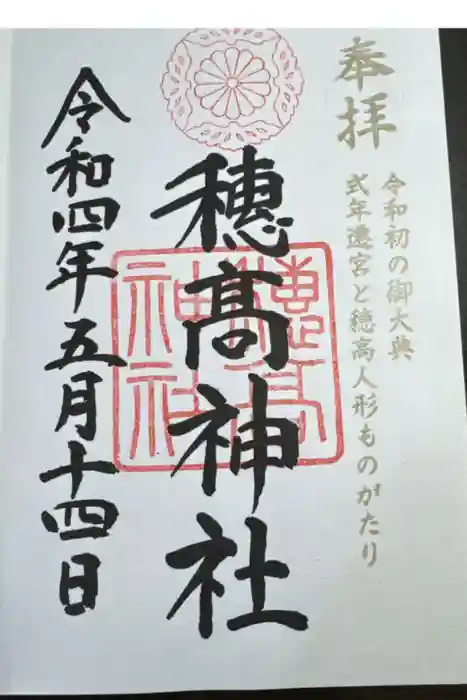 奉拝
令和初の御大典
式年遷宮と穂高人形ものがたり
穂髙神社
穂髙神社
令和四年五月十四日